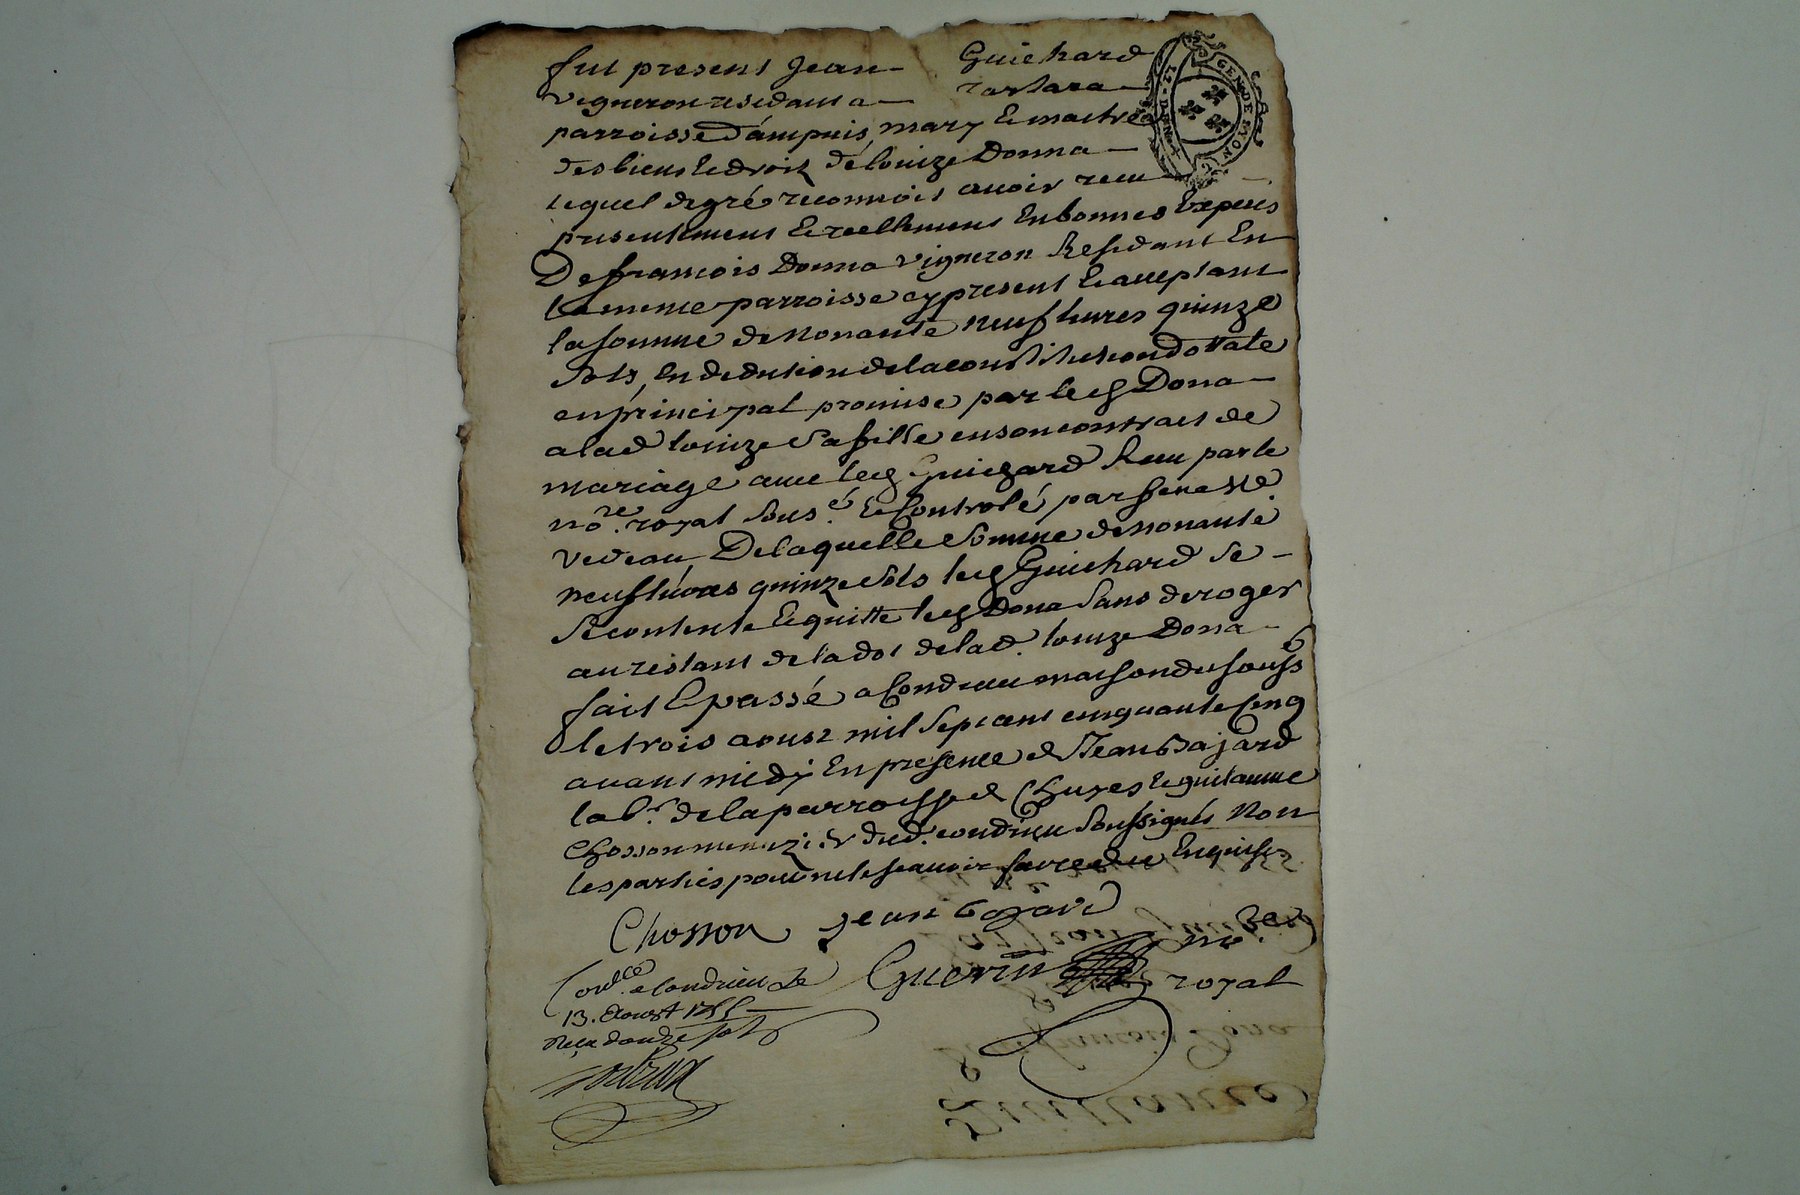 fut present Jean Guichard
vigneron residant a Tartara
parroisse d'ampuis, mary & maitre
des biens & droit de louize Donna
lequel de gré reconnois avoir receu
presentement & reellement En bonnes Expeces
De francois Donna vigneron Residant En
la meme parroisse cy present & acceptant
la somme de nonante neuf livres quinze
sols, En deduction de la constitution dottale
en principal promise par led Dona
a lad louize sa fille en son contract de
mariage avec led Guichard Receu par le
no.re royal sous.é & Controlé par
Devaquelle somme de nonante
neuf livres quinze sols led Guichard se
se contente & quitte led Dona sans deroger
au restant de la dot de lad. louize Dona
fait & passé a Condrieu maison du souss.é
le trois aoust mil sept cent cinquante Cinq
avant midy En presence de Jean Bajard
lab.r de la parroisse de Chuyes & guilaume
Chosson menuzier dud. condrieu soussignés Non
les parties pour ne le scavoir faire de ce Enquises
Chosson Jean bajard
Guerin no.re royal
Con.lé a Condrieu Le
13. Aoust 1755
Reçu douze sols
GEN. DE LYON